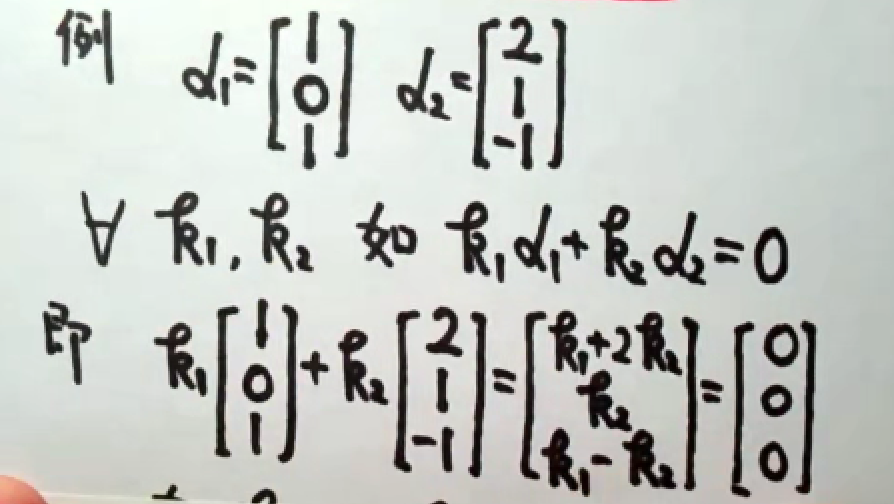 例 α₁=[1 0 1] α₂=[2 1 -1]
∀ k₁, k₂ 如 k₁α₁+k₂α₂=0
即 k₁[1 0 1]+k₂[2 1 -1]=[k₁+2k₂ k₂ k₁-k₂]=[0 0 0]